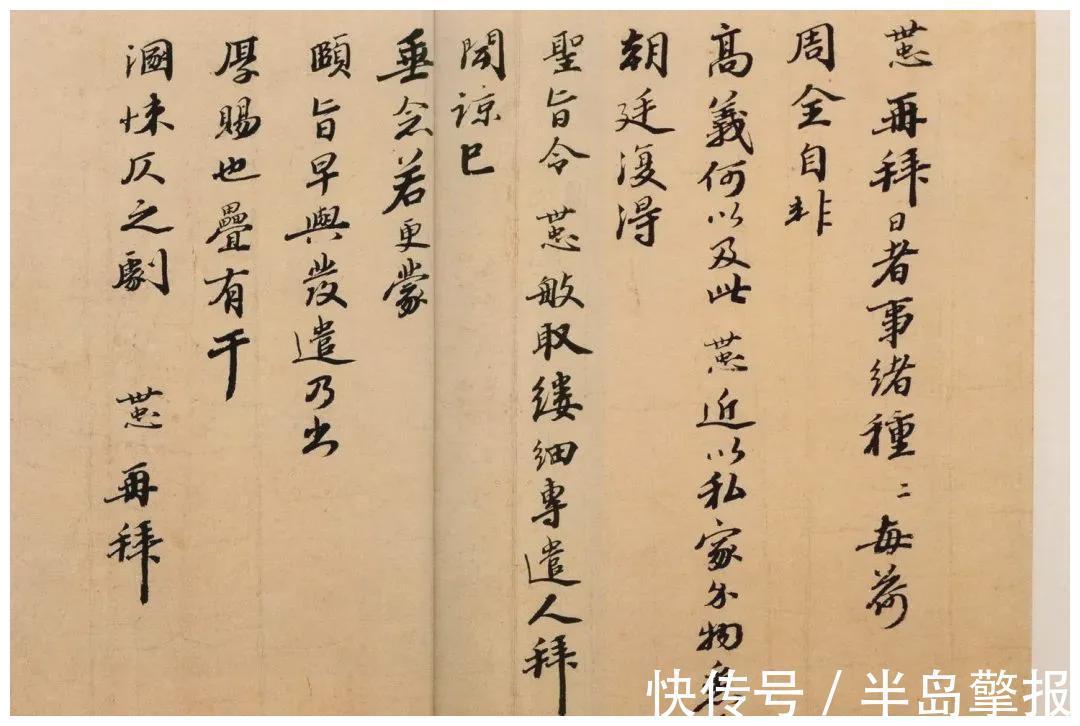 世忠再拜日者事緒種〻每荷
周全自非
高義何以及此世忠近以私家分物
朝廷復得
聖旨令世忠取縷細專遣人拜
聞諒已
垂念若更蒙
頤旨早與發遣乃出
厚賜也疊有干
溷悚仄之劇 世忠再拜
快传号 / 半岛擎报